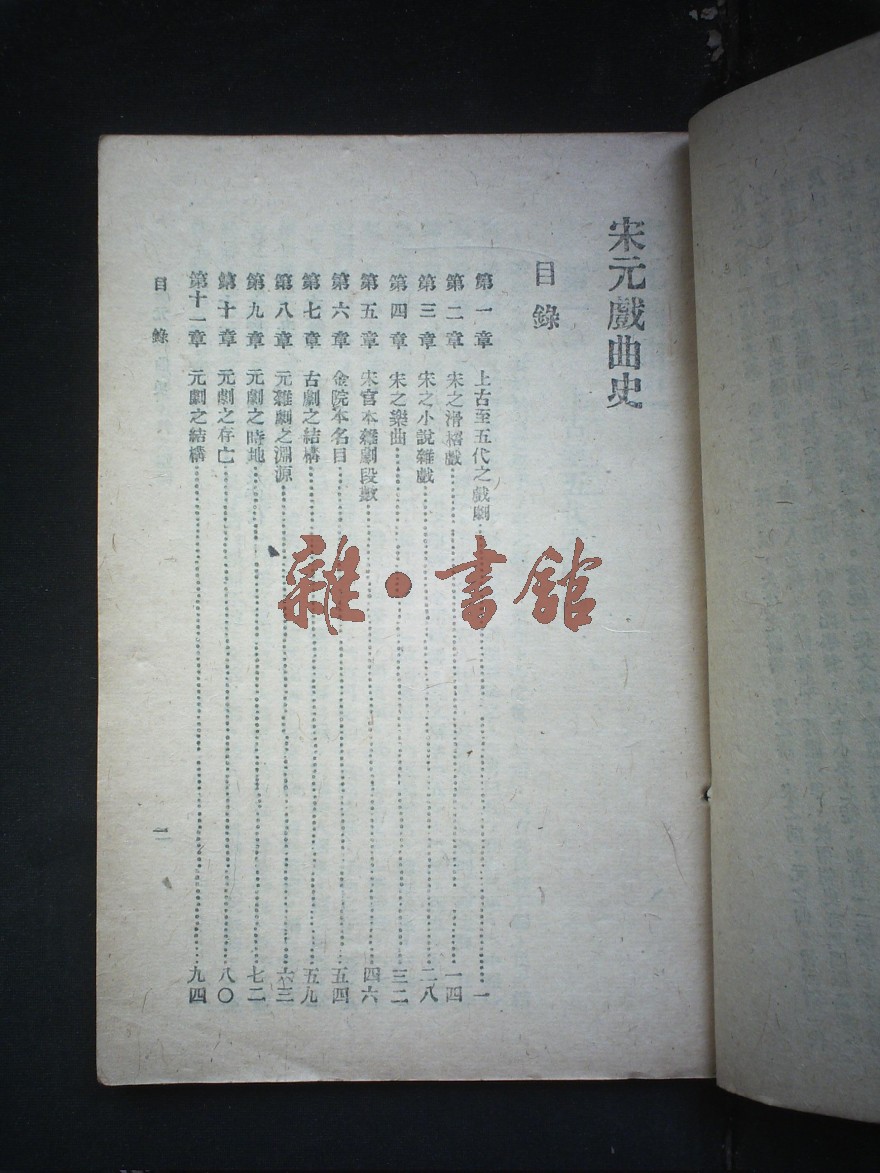 宋元戲曲史
目錄
第一章 上古至五代之戲劇 一
第二章 宋之滑稽戲 一四
第三章 宋之小說雜戲 二八
第四章 宋之樂曲 三二
第五章 宋官本雜劇段數 四六
第六章 金院本名目 五四
第七章 古劇之結構 五九
第八章 元雜劇之淵源 六三
第九章 元劇之時地 七二
第十章 元劇之存亡 八〇
第十一章 元劇之結構 九四
目錄
雜·書館